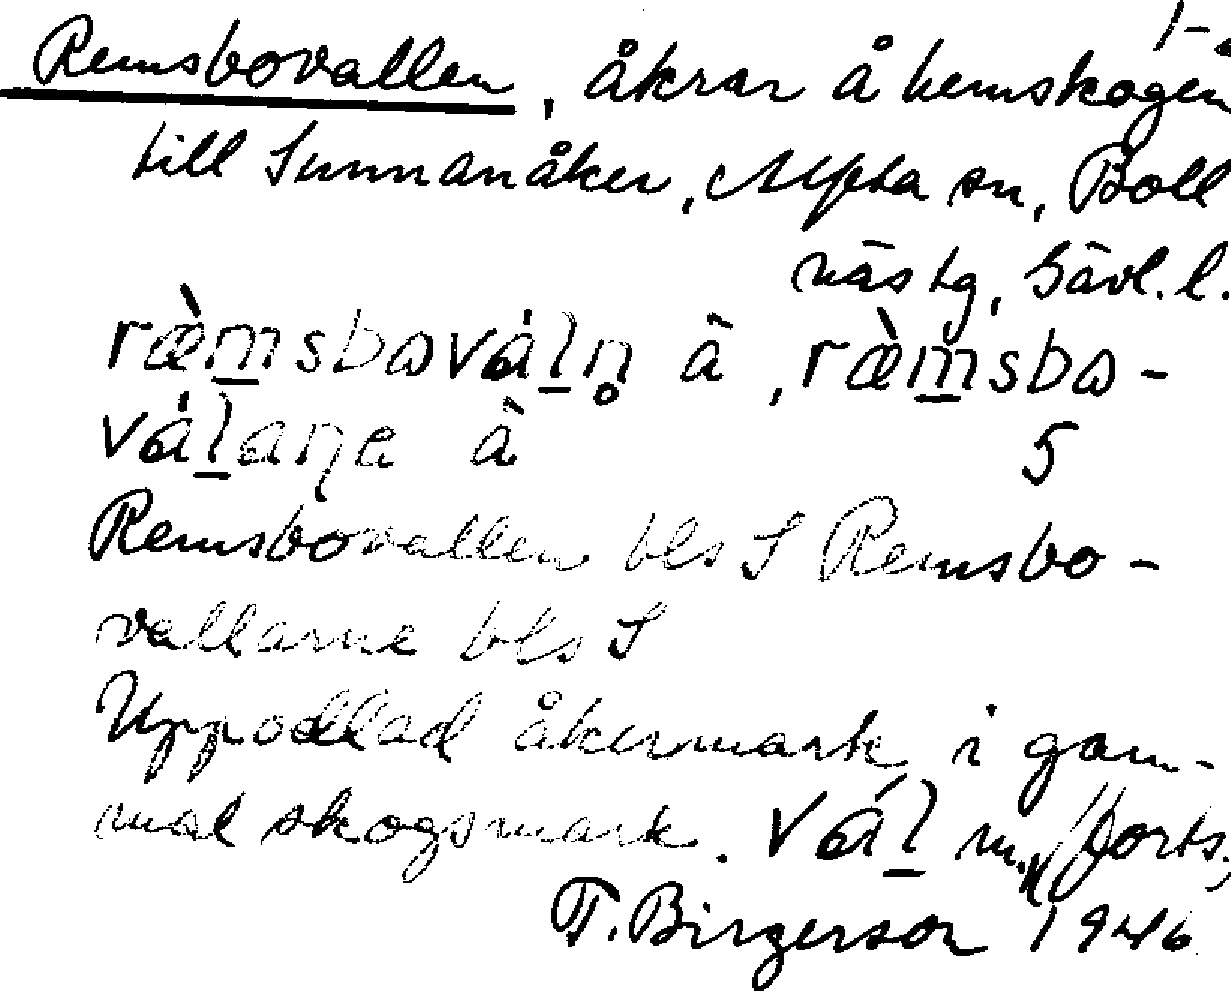 1-.
Remsbovallen, åkrar å hemskogen
till Sunnanåker, Alfta sn, Boll
näs tg, Gävl. l.
ræ̀m̲sbɷvál̲n̥ à, ræ̀m̲sbɷ-
vál̲aɳa à 5
Remsbovallen bls S Remsbo-
vallarne bls S
Uppodlad åkermark i gam-
mal skogsmark. vál̲ m. /forts.,
T. Birgerson 1946